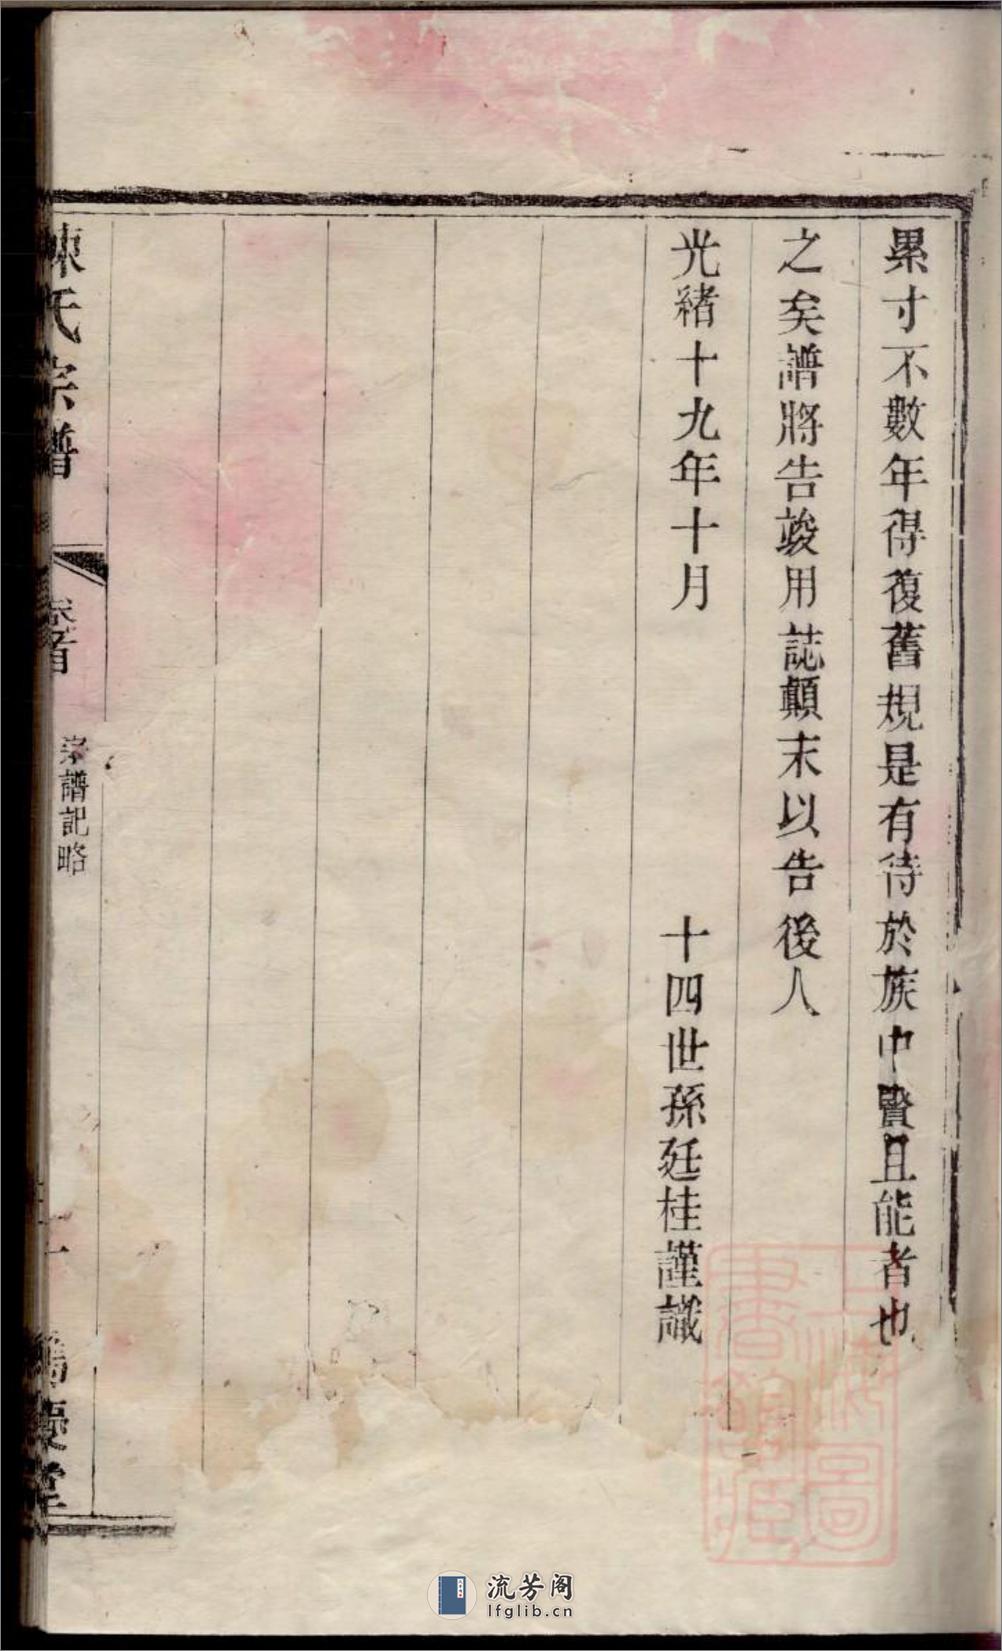 累寸不數年得復舊規是有待於族中賢且能者也
之矣譜將告竣用誌顛末以告後人
光緒十九年十月
十四世孫廷桂謹識
陳氏宗譜
卷首
宗譜記略
慶堂
上海圖書館藏
流芳阁
lfglib.cn